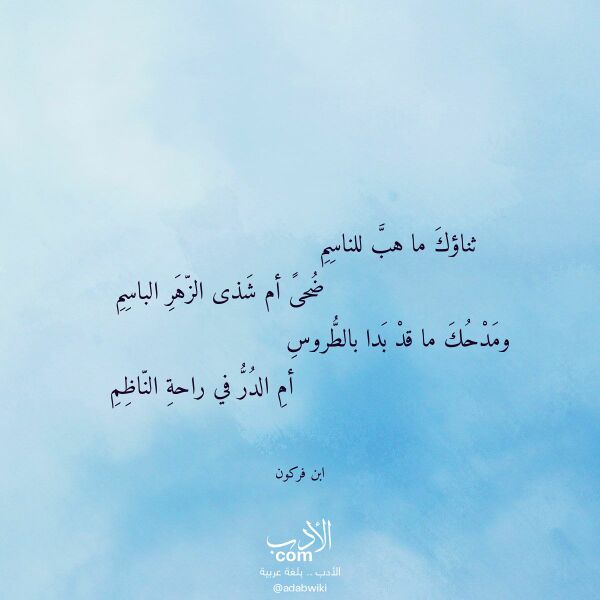 ثناؤكَ ما هبَّ للناسِمِ
ضُحىً أم شَذى الزّهَرِ الباسِمِ
ومَدْحُكَ ما قدْ بَدا بالطُّروسِ
أمِ الدُرُّ في راحةِ النّاظِمِ
ابن فركون
الأدب
com
الأدب .. بلغة عربية
@adabwiki